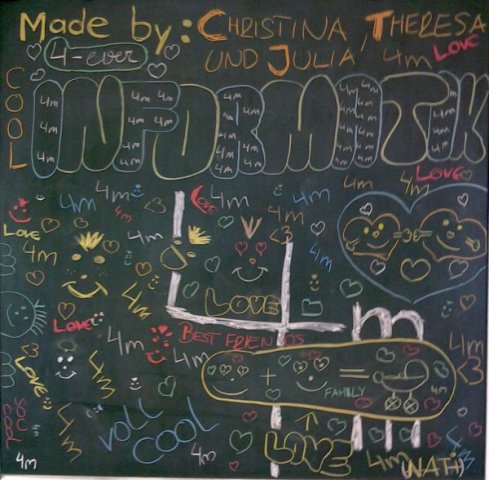 Made by: CHRISTINA, THERESA
UND JULIA
4m LOVE
4-ever
COOL
INFORMATIK
4m 4m 4m 4m 4m 4m
LOVE
4m 4m 4m Love 4m 4m
4m 4m
LOVE
<3
4m 4m
4m
LOVE
4m
4m
LOVE
BEST FRIENDS
4m 4m 4m
<3 <3
+ =
FAMILY
4m
LOVE
4m
COOL
VOLL
COOL
4m
LOVE
4m
NATI